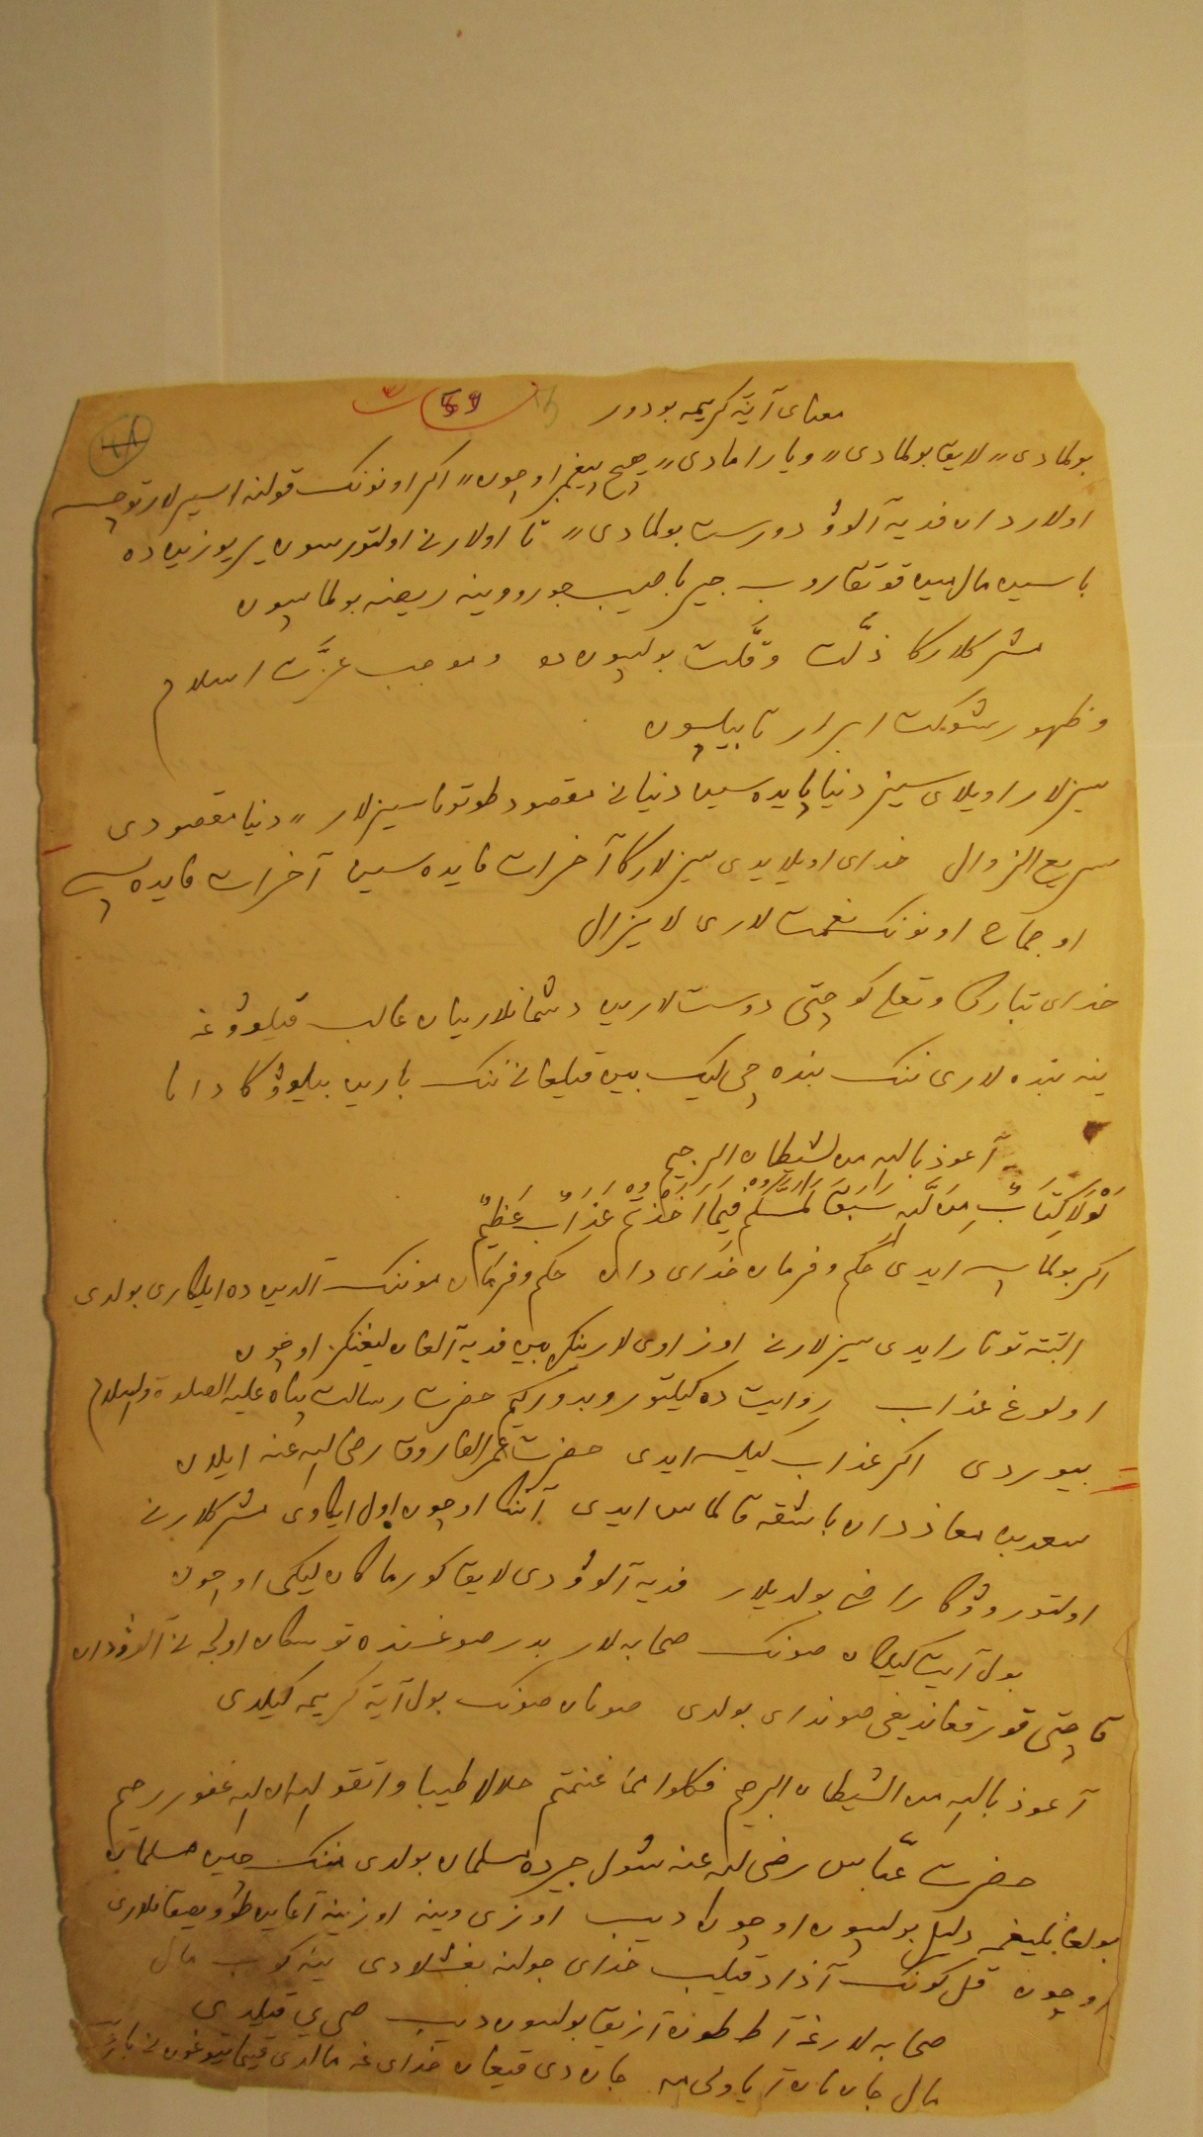 معنای آیة کریمه بودور
بولمادی〃 لایق بولمادی〃 و یارامادی〃 هیچ پیغمبر اوچون〃 اکر اونونک قولنه اسیرلار توچسه
اولاردان فدیه آلوۋ دورست بولمادی〃 تا اولارنی اولتورسون یریوزینده
باسین مال مین قوتقاروب جیر باصیب جورووینه ریضه بولماسون
مشرکلارکا ذلّت وقّلت بولسون و موجب عزّت اسلام
و ظهور شوکت ابرار تابیلسون
سیزلار اویلای سیز دنیا پایده سین دنیانی مقصود طوتوناسیزلار〃 دنیا مقصودی
سریع الزوال خدای اویلایدی سیزلارکا آخرات فایده سین آخرات فایده سی
اوجماح اونونک نعمت لاری لایزال
خدای تبارک و تعلی کوچتی دوست لارین دشمانلارینان غالب قیلوۋغه
ینه بنده لاری ننک بنده چی لیک بین قیلغانی ننک بارین بیلوۋکا دانا
آعوذ بالله من لشیطان الرجیم
لَوْلَا كِتَابٌ مِنَ لَّله سَبَقَ لَمَسَّكُمْ فِيمَا أَخَذْتُمْ عَذَابٌ عَظِيمٌ
اکر بولماسه ایدی حکم و فرمان خدای دان حکم و فرمان موننک آلدین ده ایلکاری بولدی
البتّه توتار ایدی سیزلارنی اوز اوی لارینکیز بین فدیه آلغان لیغنکز اوچون
اولوغ عذاب روایت ده کیلتوروبدورکیم حضرت رسالت پناه علیه الصلوة والسلام
بیوردی اکر عذاب کیلسه ایدی حضرت عمر الفاروق رضی الله عنه ایلان
سعدبن معاذدان باشقه قالماس ایدی آننکا اوچون اول ایکاوی مشرکلارنی
اولتوروۋکا راضی بولدیلار فدیه آلوۋدی لایق کورماکان لیکی اوچون
بول آیت کیلکان صونک صحابه لار بدر صوغشنده توسکان اولجه نی آلوۋدان
قاچتی قورقغاندیغی صوندای بولدی صونان صونک بول آیة کریمه کیلدی
آعوذ بالله من الشیطان الرجیم فکلوا ممّا غنمتم حلالا طیبا و اتقو لله ان لله غفور رحیم
حضرت عبّاس رضی لله عنه شول جیرده مسلمان بولدی مننک مسلمان
بولغانلیغمه دلیل بولسون اوچون دیب اوزی وینه اوزینه آغایین
اوچون قل کونک آذاد قیلیب خدای جولنه بغشلادی ینه کوب مال
صحابه لارغه آط طونه آزیق بولسون دیب صی قیلدی
مال جان نان آیاولی مه جان دی قیغان خدای غه مالدی